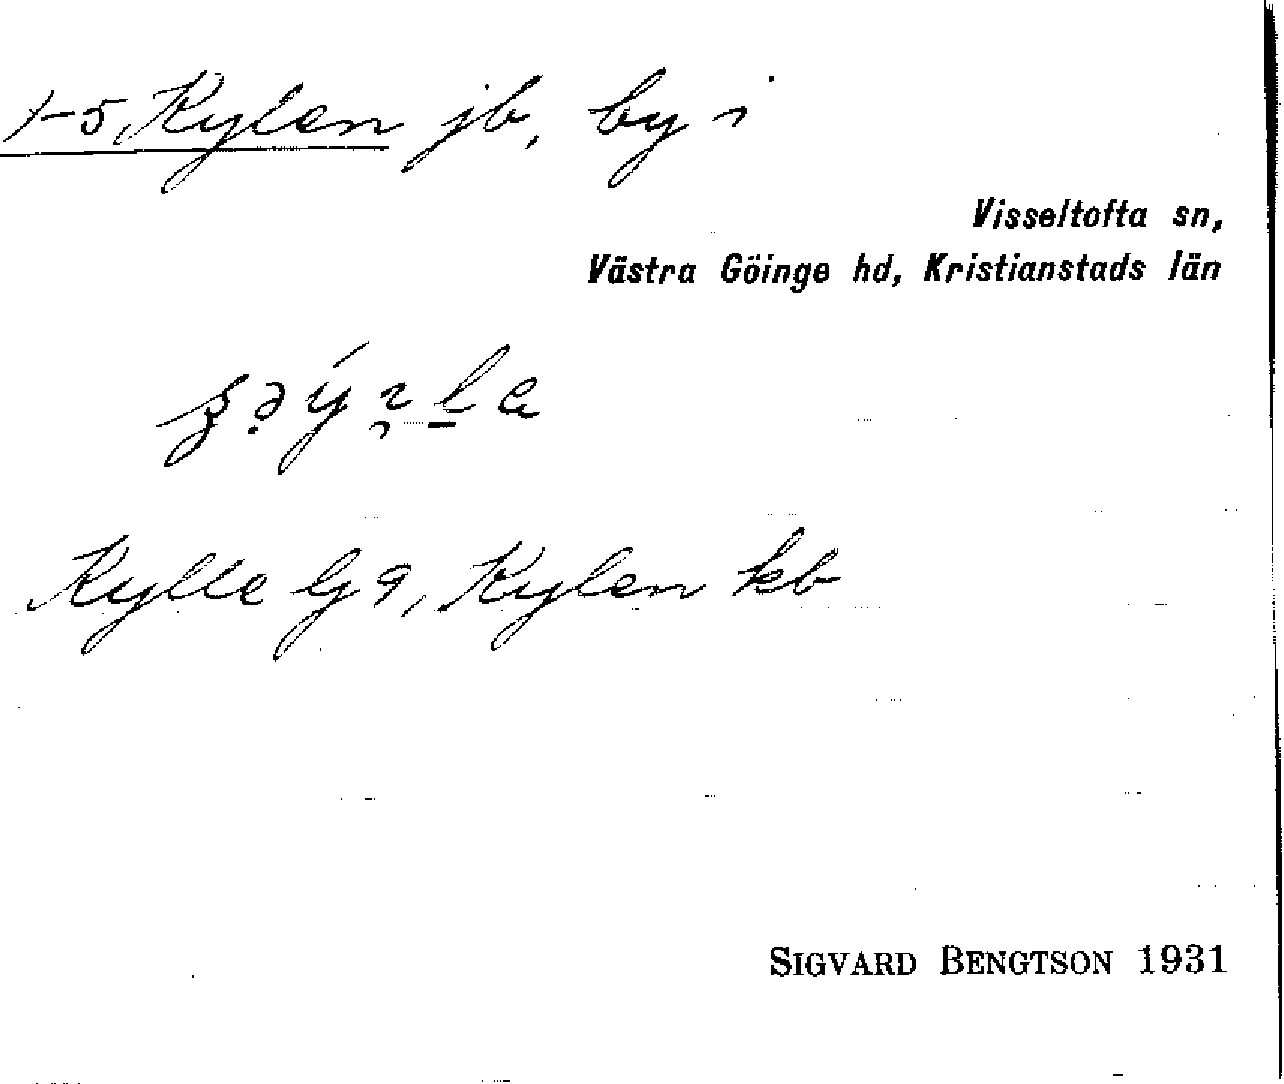 1-5, Kylen jb, by i
Visseltofta sn,
Västra Göinge hd, Kristianstads län
Kylle Gg, Kylen kb
SIGVARD BENGTSON 1931